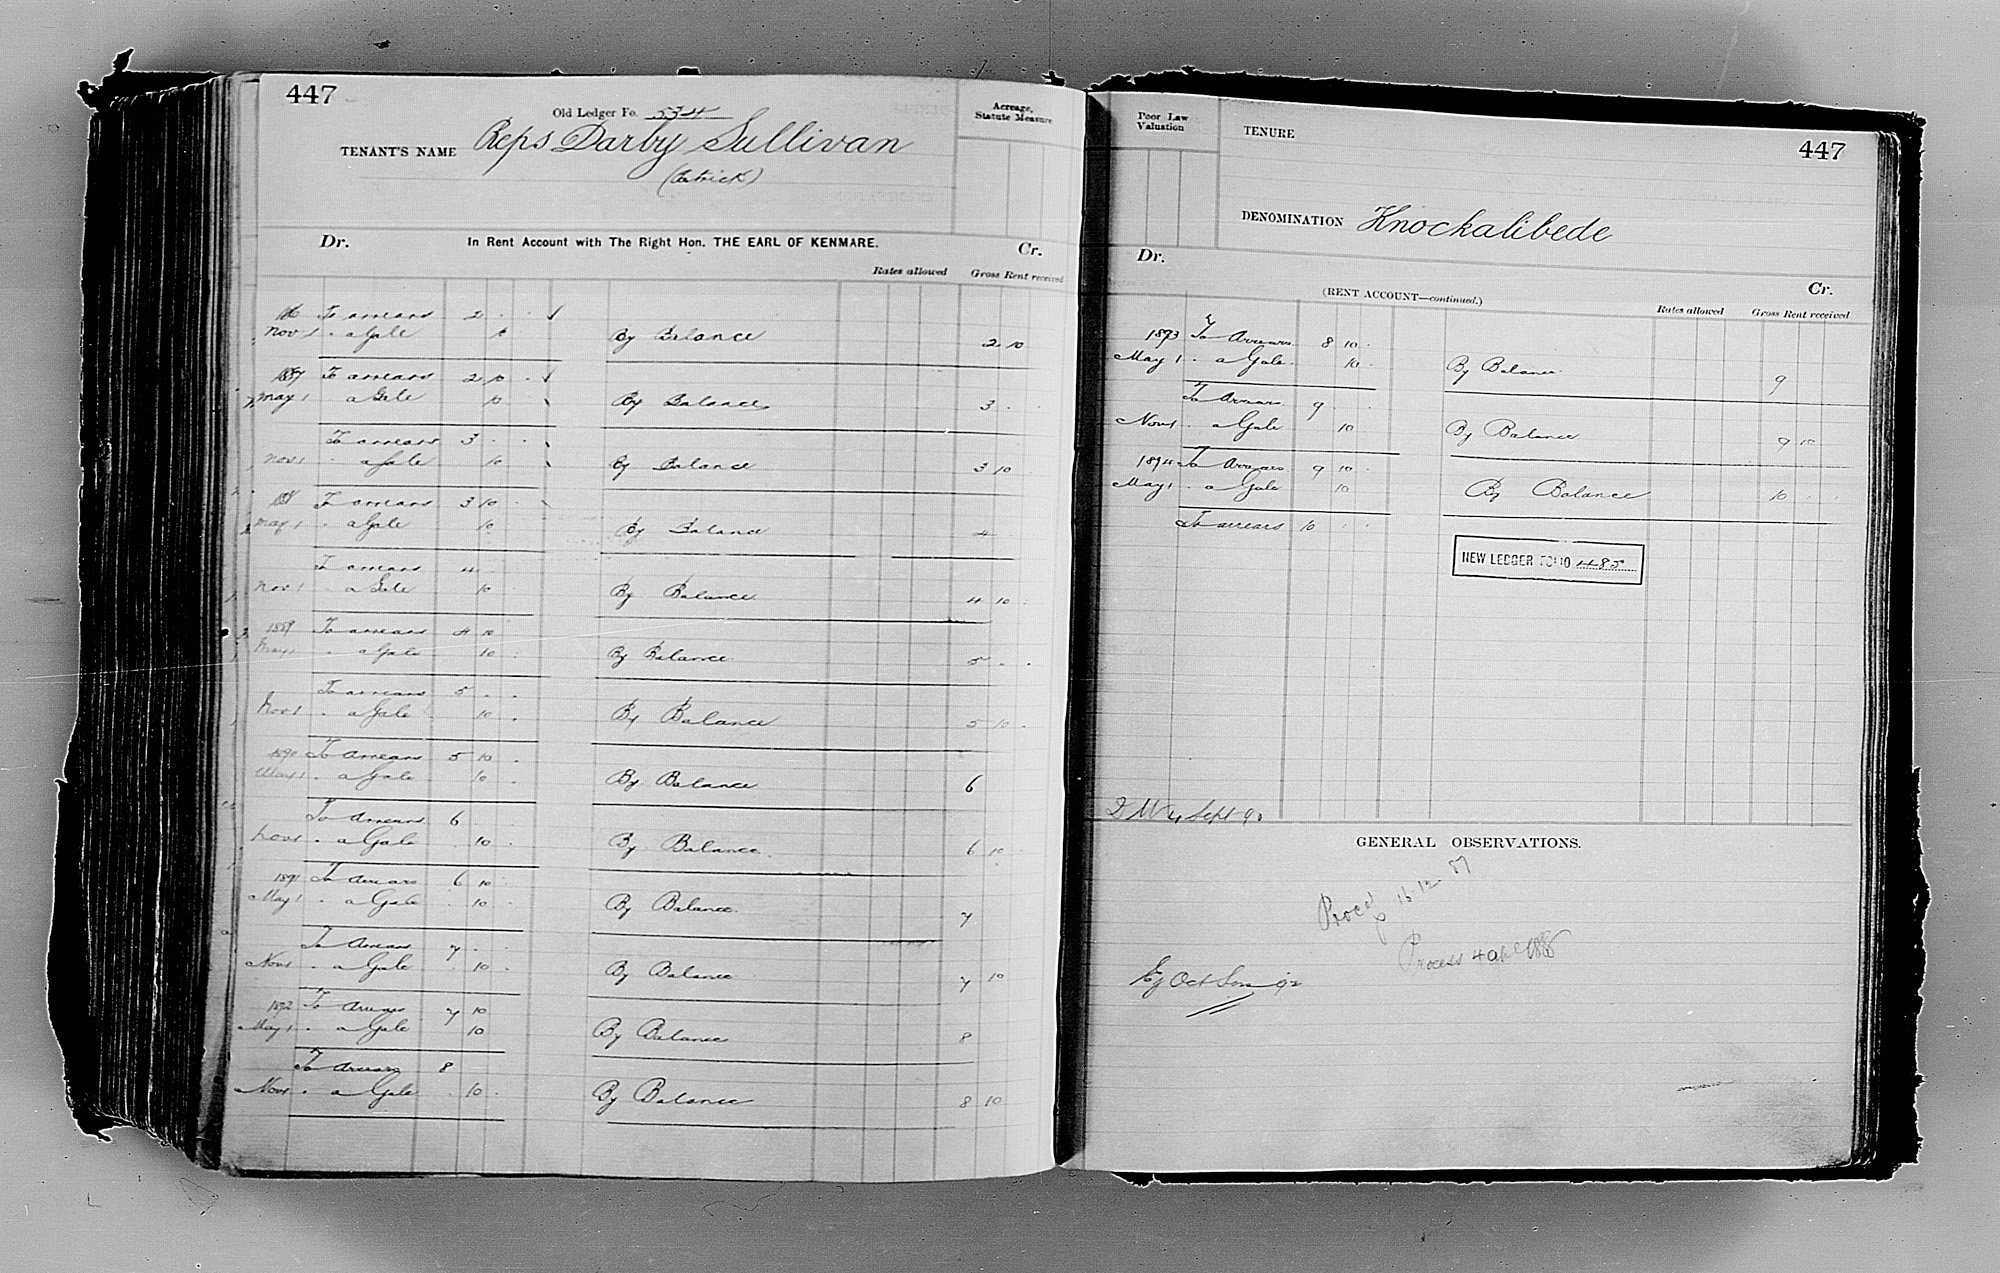 447
Old Ledger Fo. 534
TENANT'S NAME Reps Darby Sullivan
(Patrick)
Acreage,
Statute Measure
Dr. In Rent Account with The Right Hon. THE EARL OF KENMARE. Cr.
Rates allowed Gross Rent received
To arrears 2 . .
Nov 1 . a Gale 10 By Balance 2 10
1887 To arrears 2 10 .
May 1 a Gale 10 By Balance 3 .
To arrears 3 . .
Nov 1 . a Gale 10 By Balance 3 10
1888 To arrears 3 10 .
May 1 . a Gale 10 By Balance 4
To arrears 4 .
Nov 1 a Gale 10 By Balance 4 10
1889 To arrears 4 10
May 1 . a Gale 10 . By Balance 5 . .
To arrears 5 . .
Nov 1 . a Gale 10 . By Balance 5 10
1890 To Arrears 5 10 .
May 1 . a Gale 10 . By Balance 6
To Arrears 6
Nov 1 . a Gale . 10 . By Balance 6 10
1891 To Arrears 6 10 .
May 1 . a Gale . 10 . By Balance 7
To Arrears 7 . .
Nov 1 . a Gale . 10 . By Balance 7 10
1892 To Arrears 7 10
May 1 . a Gale 10 By Balance 8
To Arrears 8
Nov 1 . a Gale . 10 . By Balance 8 10
Poor Law
Valuation
TENURE
447
DENOMINATION Knockalibede
Dr. Cr.
(RENT ACCOUNT—continued.)
Rates allowed Gross Rent received
1893 To Arrears 8 10 .
May 1 . a Gale . 10 . By Balance 9
To Arrears 9
Nov 1 . a Gale . 10 By Balance 9 10
1894 To Arrears 9 10 .
May 1 . a Gale 10 By Balance 10 . .
To arrears 10 . .
NEW LEDGER FOLIO 485
4 Sept 90
GENERAL OBSERVATIONS.
16.12.87
Process 4 1888
Oct 92